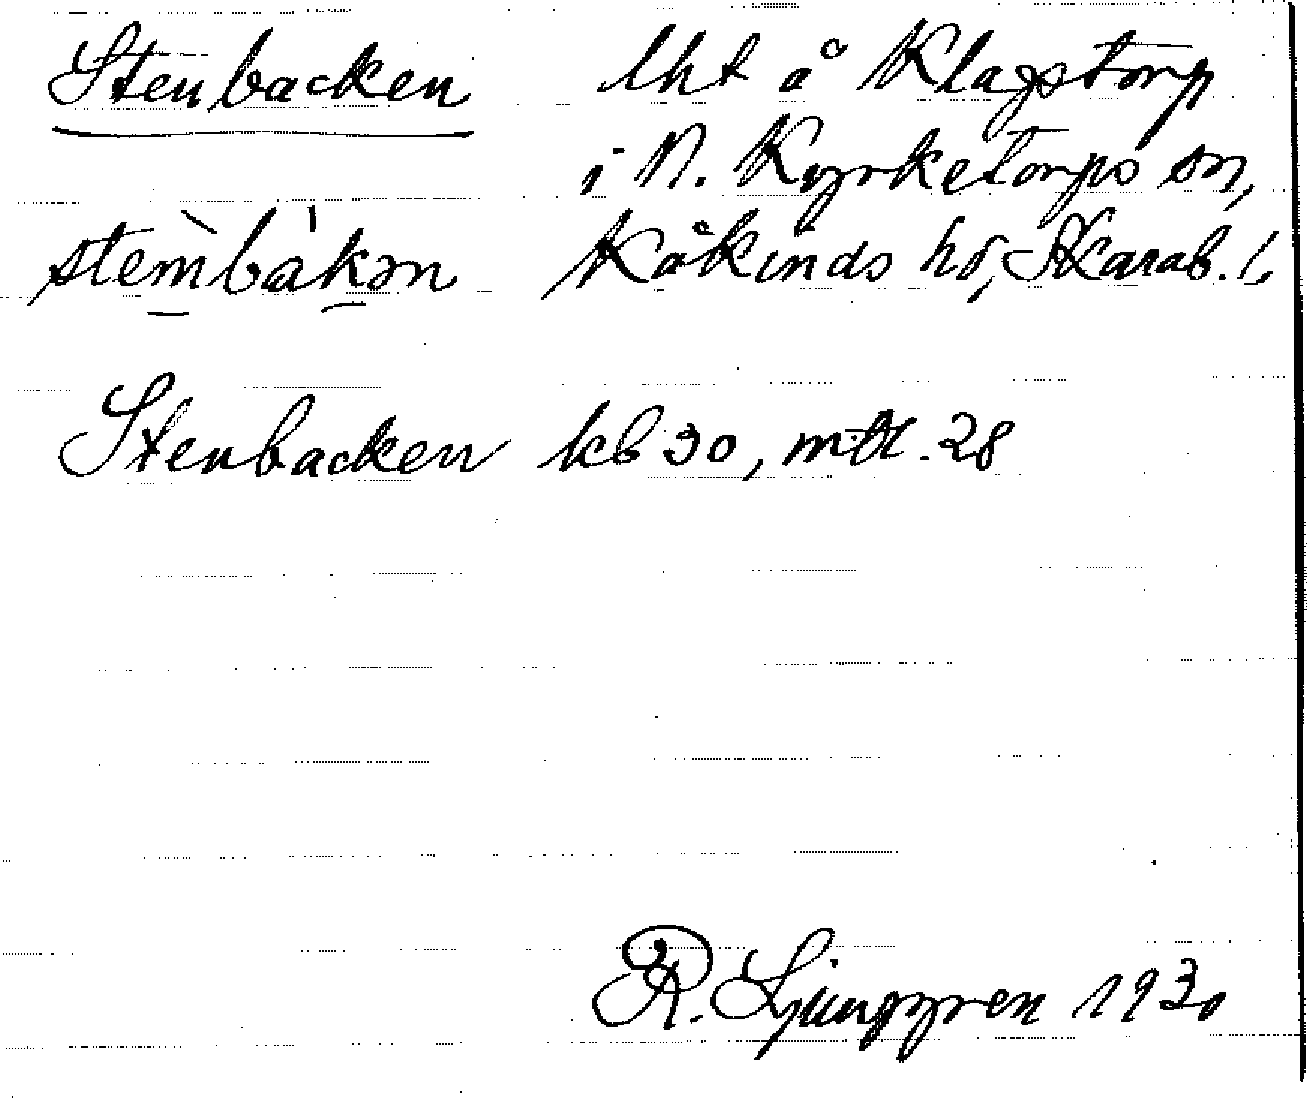 Stenbacken lht å Klagstorp
i N. Kyrketorps sn,
stèmbákən Kåkinds hd, Skarab. l.
Stenbacken kb 30, mtl. 28
R. Ljunggren 1930